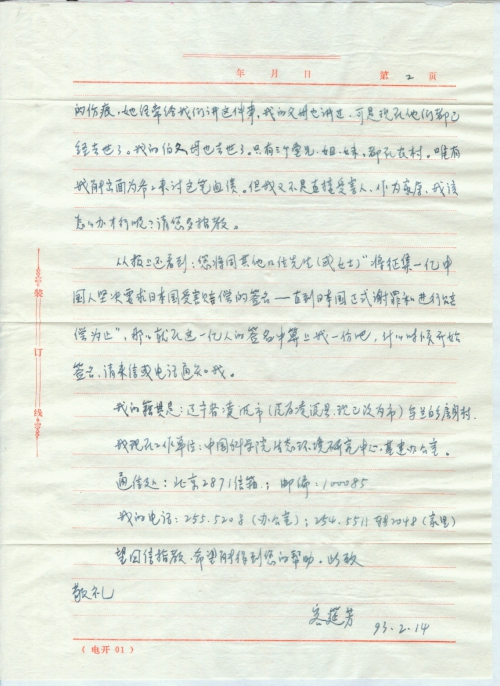 年 月 日 第 2 页
的伤痕,她经常给我们讲这件事,我的父母也讲过,可是现在他们都已
经去世了。我的伯父母也去世了。只有三个堂兄、姐、妹,都在农村。唯有
我能出面为亲人来讨这笔血债。但我又不是直接受害人,作为亲属,我该
怎么办才行呢?请您多指教。
从报上还看到:您将同其他几位先生(或女士)“将征集一亿中
国人坚决要求日本国受害赔偿的签名——直到日本国正式谢罪和进行赔
偿为止”,那么就在这一亿人的签名中算上我一份吧,什么时候开始
签名,请来信或电话通知我。
我的籍贯是:辽宁省凌源市(原名凌源县,现已改为市)
我现在工作单位:中国科学院生态环境研究中心,基建办公室。
通信处:北京2871信箱;邮编:100085
我的电话:255.5208(办公室);254.5511转2048(家里)
望回信指教,希望能得到您的帮助。此致
敬礼
93.2.14
装 订 线
(电开01)